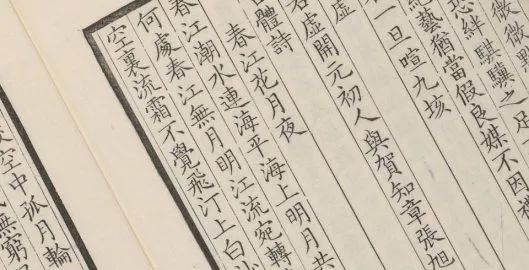 微微
絆驥之
藝猶當假良媒不因
一旦喧九垓
虛
虛開元初人與賀知章張旭
體詩
春江花月夜
春江潮水連海平海上明月共
何處春江無月明江流宛轉
空裏流霜不覺飛汀上白沙
空中孤月輪
無窮